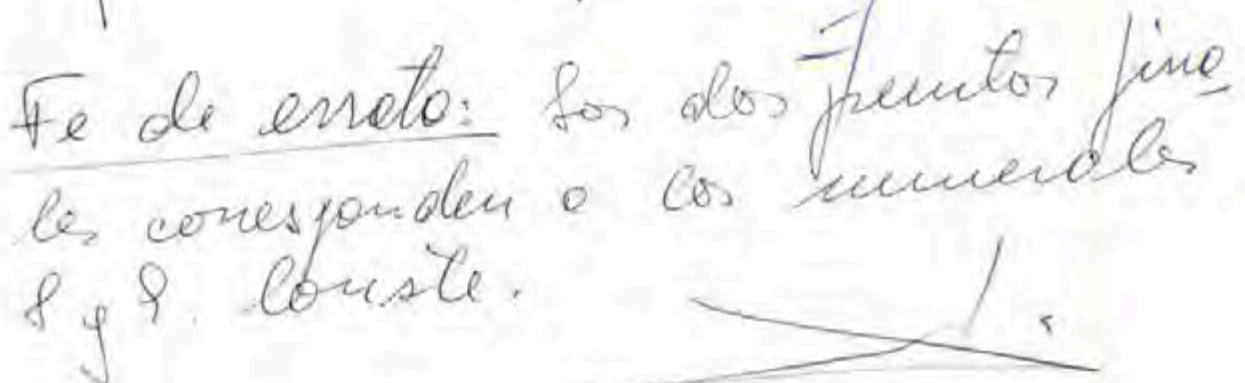 Fe de errata: Los dos puntos fina
les corresponden a los numerales
8 y 9. Conste.